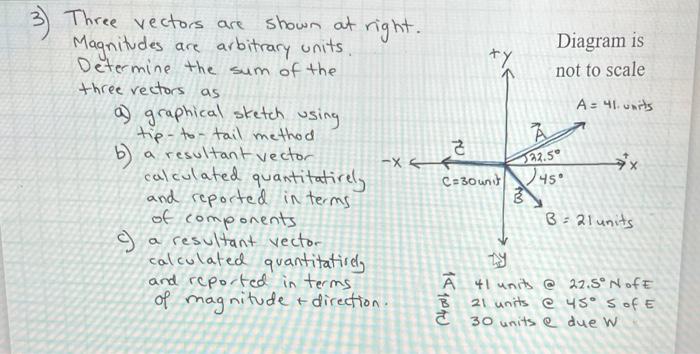 3) Three vectors are shown at right.
Magnitudes are arbitrary units.
Determine the sum of the
three vectors as
a) graphical sketch using
tip-to-tail method
b) a resultant vector
calculated quantitatively
and reported in terms
of components
c) a resultant vector
calculated quantitatively
and reported in terms
of magnitude + direction.
Diagram is
not to scale
+y
A = 41 units
A
C
22.5°
-x
+x
C=30 unit
45°
B
B = 21 units
-y
A 41 units @ 22.5° N of E
B 21 units @ 45° S of E
C 30 units @ due W